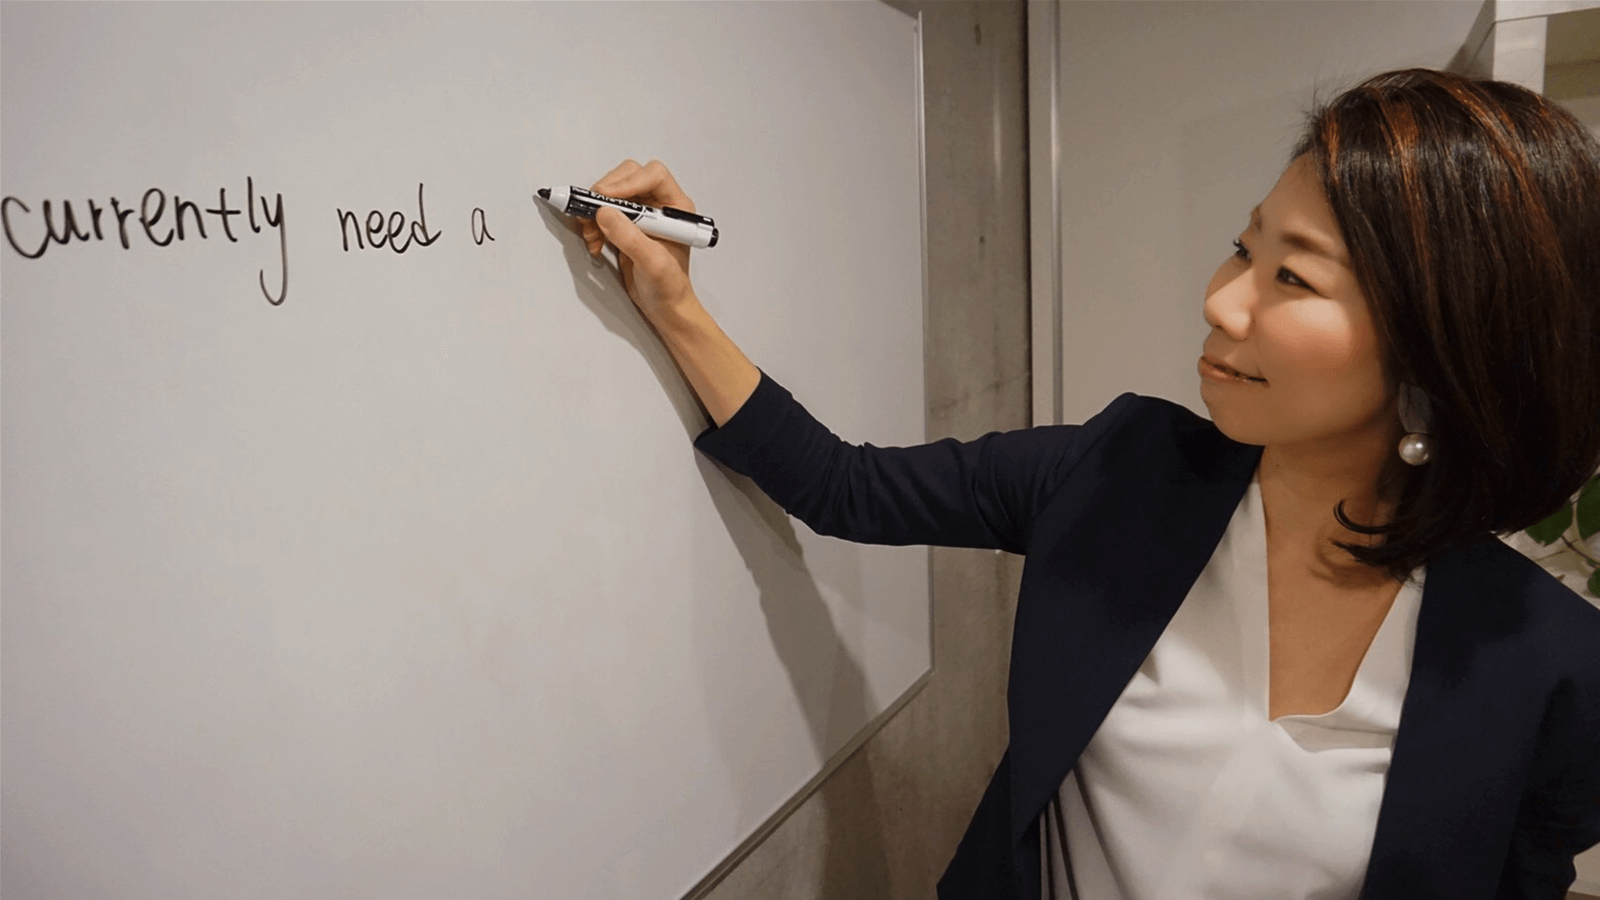 currently need a